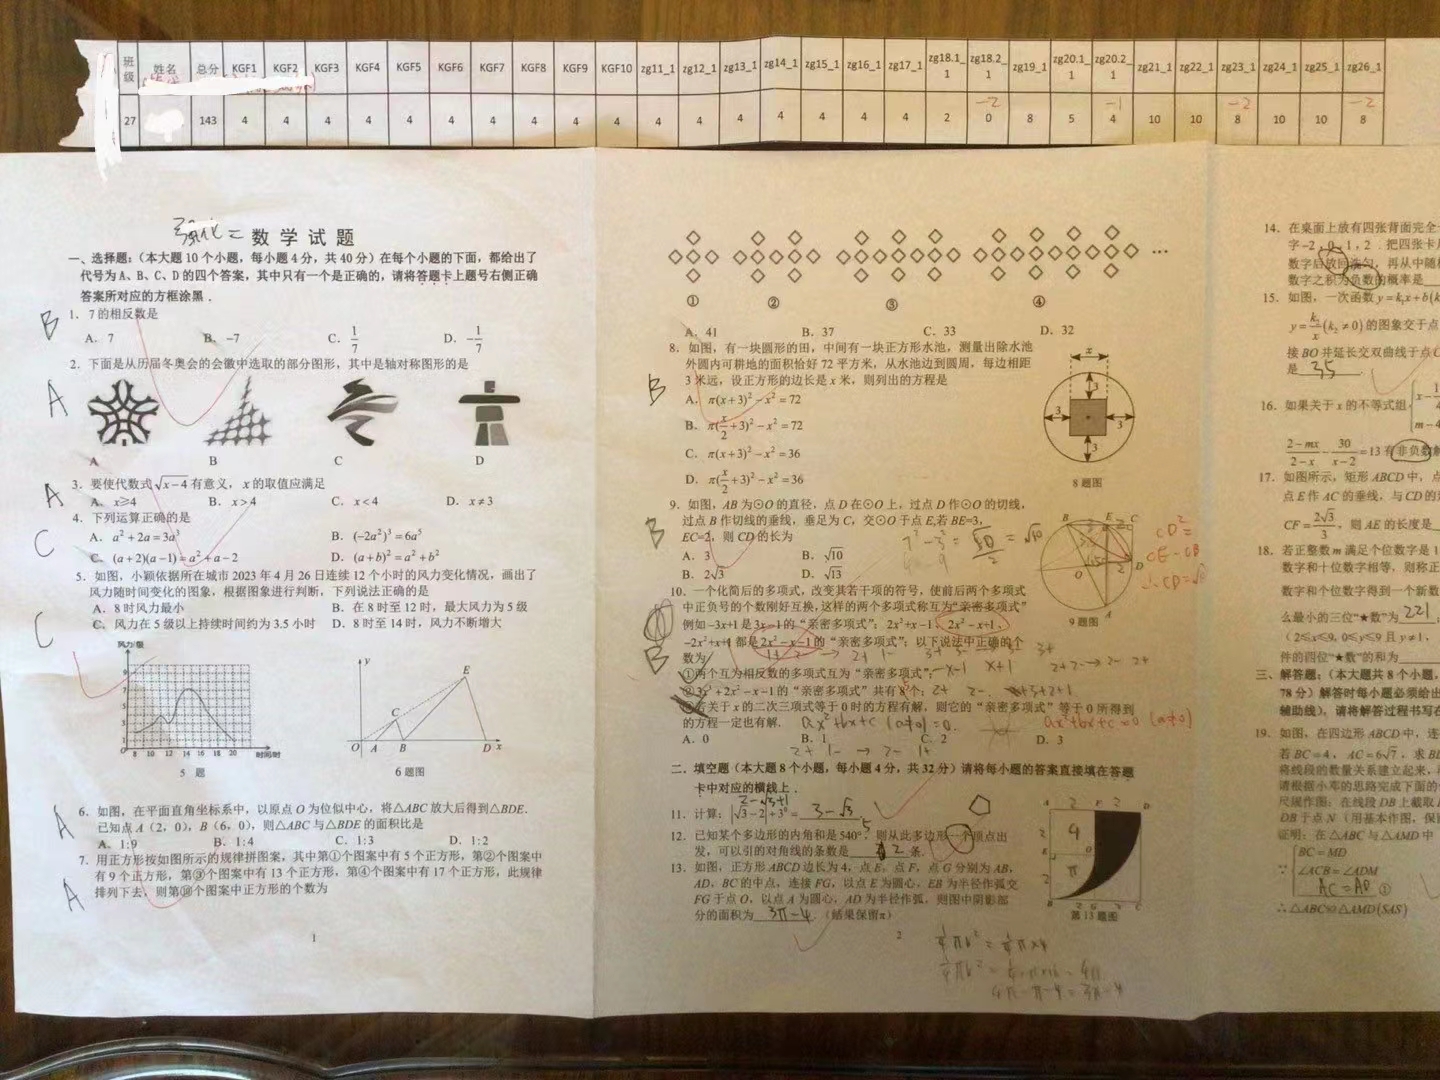 班级 姓名 总分 KGF1 KGF2 KGF3 KGF4 KGF5 KGF6 KGF7 KGF8 KGF9 KGF10 zg11_1 zg12_1 zg13_1 zg14_1 zg15_1 zg16_1 zg17_1 zg18.1_1 zg18.2_1 zg19_1 zg20.1_1 zg20.2_1 zg21_1 zg22_1 zg23_1 zg24_1 zg25_1 zg26_1
-2 -1 -2 -2
27 143 4 4 4 4 4 4 4 4 4 4 4 4 4 4 4 4 4 2 0 8 5 4 10 10 8 10 10 8
强化二 数学试题
一、选择题:(本大题10个小题,每小题4分,共40分)在每个小题的下面,都给出了
代号为A、B、C、D的四个答案,其中只有一个是正确的,请将答题卡上题号右侧正确
答案所对应的方框涂黑.
B 1. 7的相反数是
A. 7 B. -7 C. 1/7 D. -1/7
2. 下面是从历届冬奥会的会徽中选取的部分图形,其中是轴对称图形的是
A
A B C D
3. 要使代数式√(x-4)有意义,x的取值应满足
A A. x≥4 B. x>4 C. x<4 D. x≠3
4. 下列运算正确的是
A. a²+2a=3a³ B. (-2a²)³=6a⁵
C C. (a+2)(a-1)=a²+a-2 D. (a+b)²=a²+b²
5. 如图,小颖依据所在城市2023年4月26日连续12个小时的风力变化情况,画出了
风力随时间变化的图象,根据图象进行判断,下列说法正确的是
A. 8时风力最小 B. 在8时至12时,最大风力为5级
C C. 风力在5级以上持续时间约为3.5小时 D. 8时至14时,风力不断增大
风力/级
8 10 12 14 16 18 20 时间/时
5 题
y E C O A B D x
6题图
6. 如图,在平面直角坐标系中,以原点O为位似中心,将△ABC放大后得到△BDE.
A 已知点A(2,0),B(6,0),则△ABC与△BDE的面积比是
A. 1:9 B. 1:4 C. 1:3 D. 1:2
7. 用正方形按如图所示的规律拼图案,其中第①个图案中有5个正方形,第②个图案中
A 有9个正方形,第③个图案中有13个正方形,第④个图案中有17个正方形,此规律
排列下去,则第⑩个图案中正方形的个数为
1
…
① ② ③ ④
A. 41 B. 37 C. 33 D. 32
8. 如图,有一块圆形的田,中间有一块正方形水池,测量出除水池
外圆内可耕地的面积恰好72平方米,从水池边到圆周,每边相距
B 3米远,设正方形的边长是x米,则列出的方程是
A. π(x+3)²-x²=72
B. π(x/2+3)²-x²=72
C. π(x+3)²-x²=36
D. π(x/2+3)²-x²=36
x
3
3 3
3
8题图
9. 如图,AB为⊙O的直径,点D在⊙O上,过点D作⊙O的切线,
过点B作切线的垂线,垂足为C,交⊙O于点E,若BE=3,
B EC=2,则CD的长为
A. 3 B. √10
B. 2√3 D. √13
B E C
O D
A
9题图
10. 一个化简后的多项式,改变其若干项的符号,使前后两个多项式
中正负号的个数刚好互换,这样的两个多项式称互为“亲密多项式”
例如-3x+1是3x-1的“亲密多项式”;2x²+x-1、2x²-x+1、
-2x²+x+1都是2x²-x-1的“亲密多项式”;以下说法中正确的个
B 数为
①两个互为相反数的多项式互为“亲密多项式”; -x-1 x+1
②3x³+2x²-x-1的“亲密多项式”共有6个;
③若关于x的二次三项式等于0时的方程有解,则它的“亲密多项式”等于0所得到
的方程一定也有解. ax²+bx+c (a≠0)=0. ax²+bx+c=0 (a≠0)
A. 0 B. 1 C. 2 D. 3
二、填空题(本大题8个小题,每小题4分,共32分)请将每小题的答案直接填在答题
卡中对应的横线上.
2-√3+1
11. 计算:|√3-2|+3⁰= 3-√3
12. 已知某个多边形的内角和是540°,则从此多边形一个顶点出
发,可以引的对角线的条数是 2 条.
13. 如图,正方形ABCD边长为4,点E、点F、点G分别为AB,
AD,BC的中点,连接FG,以点E为圆心,EB为半径作弧交
FG于点O,以点A为圆心,AD为半径作弧,则图中阴影部
分的面积为 3π-4 .(结果保留π)
A 2 F 2 D
2 4
E O
2 π
B 2 G 2 C
第13题图
2
4π-π-4=3π-4
14. 在桌面上放有四张背面完全
字-2,0,1,2.把四张卡片
数字后放回洗匀,再从中随机
数字之积为负数的概率是
15. 如图,一次函数y=k₁x+b(k
y=k₂/x(k₂≠0)的图象交于点
接BO并延长交双曲线于点C
是 35 .
16. 如果关于x的不等式组
(2-mx)/(2-x)-30/(x-2)=13有非负数
17. 如图所示,矩形ABCD中,点
点E作AC的垂线,与CD的
CF=2√3/3,则AE的长度是
18. 若正整数m满足个位数字是1
数字和十位数字相等,则称正
数字和个位数字得到一个新数
么最小的三位“★数”为 221
(2≤x≤9,0≤y≤9且y≠1,
件的四位“★数”的和为
三、解答题:(本大题共8个小题,
78分)解答时每小题必须给出
辅助线),请将解答过程书写在
19. 如图,在四边形ABCD中,连
若BC=4,AC=6√7,求BD
将线段的数量关系建立起来,
请根据小邓的思路完成下面的
尺规作图:在线段DB上截取
DB于点N(用基本作图,保留
证明:在△ABC与△AMD中
BC=MD
∵ ∠ACB=∠ADM
AC=AD ①
∴△ABC≌△AMD(SAS)